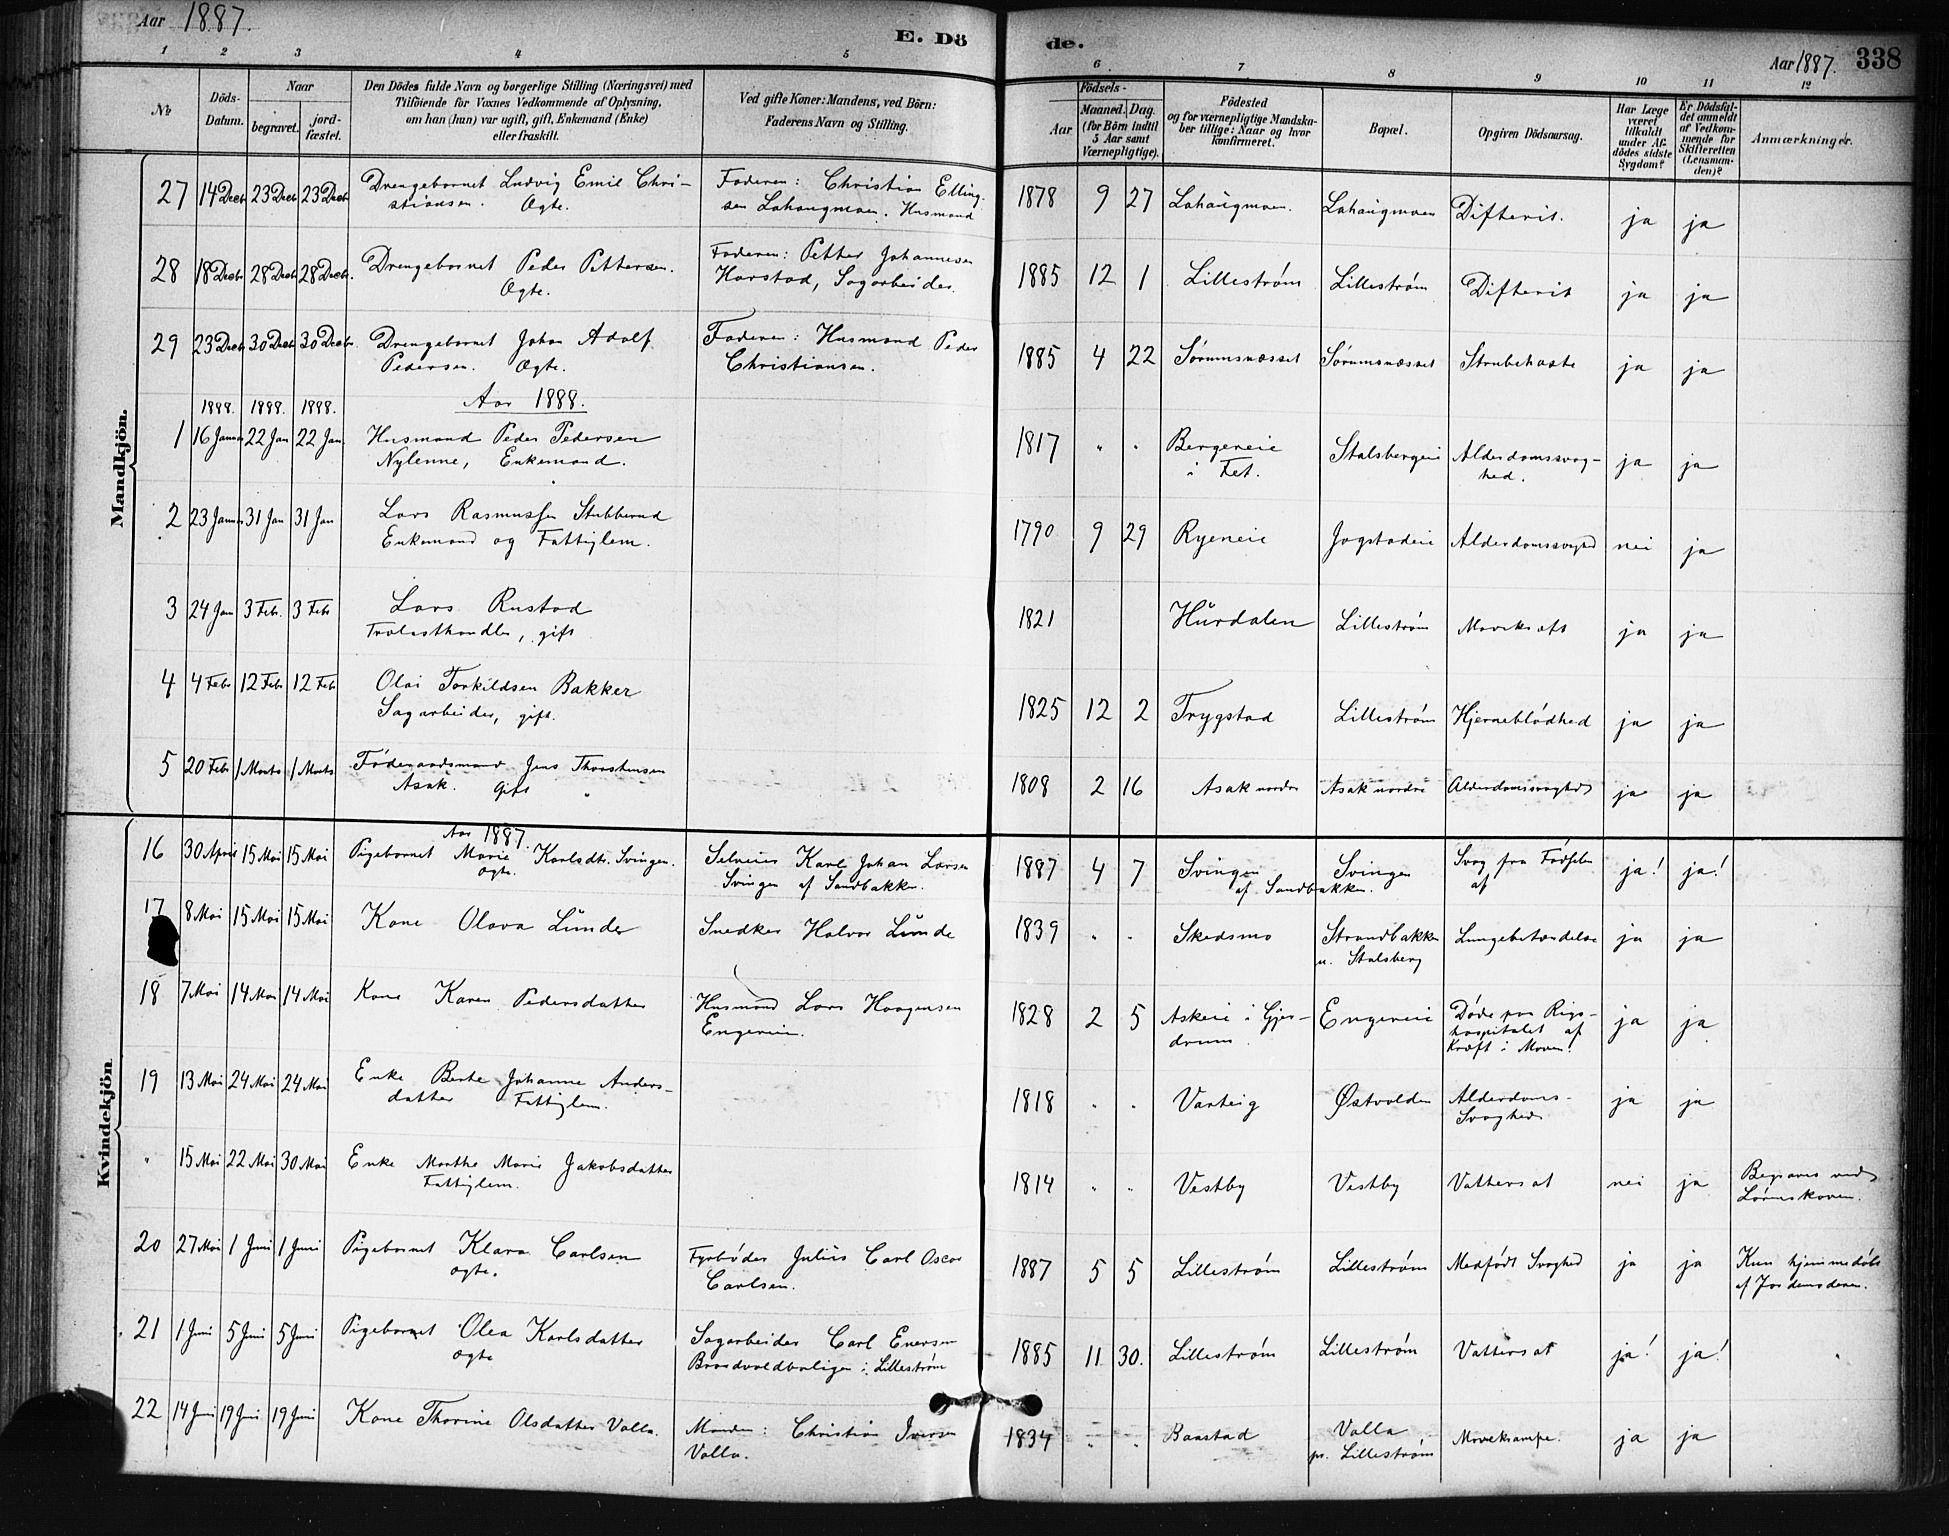 Aar 1887.
E. Dö
de.
Aar 1887. 338
1 2 3 4 5 6 7 8 9 10 11 12
No
Döds-Datum.
Naar
begravet. jordfæstet.
Den Dödes fulde Navn og borgerlige Stilling (Næringsvei) med
Tilföiende for Voxnes Vedkommende af Oplysning,
om han (hun) var ugift, gift, Enkemand (Enke)
eller fraskilt.
Ved gifte Koner: Mandens, ved Börn:
Faderens Navn og Stilling.
Födsels-
Aar Maaned. Dag.
(for Börn indtil
5 Aar samt
Værnepligtige).
Födested
og for værnepligtige Mandskaber tillige: Naar og hvor
konfirmeret.
Bopæl.
Opgiven Dödsaarsag.
Har Læge
været
tilkaldt
under Afdödes sidste
Sygdom?
Er Dödsfaldet anmeldt
af Vedkommende for
Skifteretten
(Lensmanden)?
Anmærkninger.
Mandkjön.
27 14 Decb 23 Decb 23 Decb Drengebarnet Ludvig Emil Chri-
stiansen. Ægte.
Faderen: Christian Elling-
sen Lahaugmoen. Husmand
1878 9 27 Lahaugmoen. Lahaugmoen Difterit. ja ja
28 18 Decb 28 Decb 28 Decb. Drengebarnet Peder Pettersen.
Ægte.
Faderen: Petter Johannesen
Harstad, Sagarbeider.
1885 12 1 Lillestrøm Lillestrøm Difterit ja ja
29 23 Decb 30 Decb 30 Decb. Drengebarnet Johan Adolf
Pedersen. Ægte.
Faderen: Husmand Peder
Christiansen.
1885 4 22 Sørumsnæsset Sørumsnæsset Strubehoste ja ja
1888. 1888. 1888. Aar 1888.
1 16 Januar 22 Jan 22 Jan. Husmand Peder Pedersen
Nylenne, Enkemand.
1817 " " Bergereie
i Fet. Stalsbergeie Alderdomssvag-
hed. ja ja
2 23 Januar 31 Jan 31 Jan Lars Rasmussen Stubberud
Enkemand og Fattiglem.
1790 9 29 Ryeneie Jogstadeie Alderdomssvaghed nei ja
3 24 Jan 3 Feb. 3 Feb Lars Rustad
Trælasthandler, gift
1821 Hurdalen Lillestrøm Mavekræft ja ja
4 4 Febr 12 Feb 12 Feb Olai Torkildsen Bakker
Sagarbeider, gift.
1825 12 2 Trygstad Lillestrøm Hjerneblødhed ja ja
5 20 Febr 1 Marts 1 Marts Føderaadsmand Jens Thorstensen
Asak. gift
1808 2 16 Asak nordre Asak nordre Alderdomssvaghed ja ja
Kvindekjön
Aar 1887.
16 30 April 15 Mai 15 Mai Pigebarnet Marie Karlsdtr. Svingen.
ægte.
Selveier Karl Johan Larsen
Svingen af Sandbakken.
1887 4 7 Svingen
af Sandbakken. Svingen Svag fra Fødselen
af ja! ja!
17 8 Mai 15 Mai 15 Mai Kone Olava Lunder Snedker Halvor Lunde
1839 " " Skedsmo Strandbakken
u. Stalsberg Lungebetændelse ja ja
18 7 Mai 14 Mai 14 Mai Kone Karen Pedersdatter Husmand Lars Haagensen
Engereie.
1828 2 5 Askeie i Gjer-
drum. Engereie Døde paa Rigs-
hospitalet af
Kræft i Maven! ja ja
19 13 Mai 24 Mai 24 Mai Enke Berte Johanne Anders-
datter Fattiglem.
1818 " " Varteig Østvolden Alderdoms-
Svaghed ja ja
" 15 Mai 22 Mai 30 Mai Enke Marthe Marie Jakobsdatter
Fattiglem.
1814 " " Vestby Vestby Vattersot nei ja Begraves ved
Lørenskoven.
20 27 Mai 1 Juni 1 Juni Pigebarnet Klara Carlsen
ægte.
Fyrbøder Julius Carl Oscar
Carlsen.
1887 5 5 Lillestrøm Lillestrøm Medfødt Svaghed ja ja Kun hjemmedøbt
af Jordemoderen.
21 1 Juni 5 Juni 5 Juni Pigebarnet Olea Karlsdatter
ægte
Sagarbeider Carl Enersen
i Lillestrøm
1885 11 30. Lillestrøm Lillestrøm Vattersot ja! ja!
22 14 Juni 19 Juni 19 Juni Kone Thorine Olsdatter Valla. Manden: Christian Iversen
Valla.
1834 " " Baastad Valla
pr. Lillestrøm Mavekrampe. ja ja